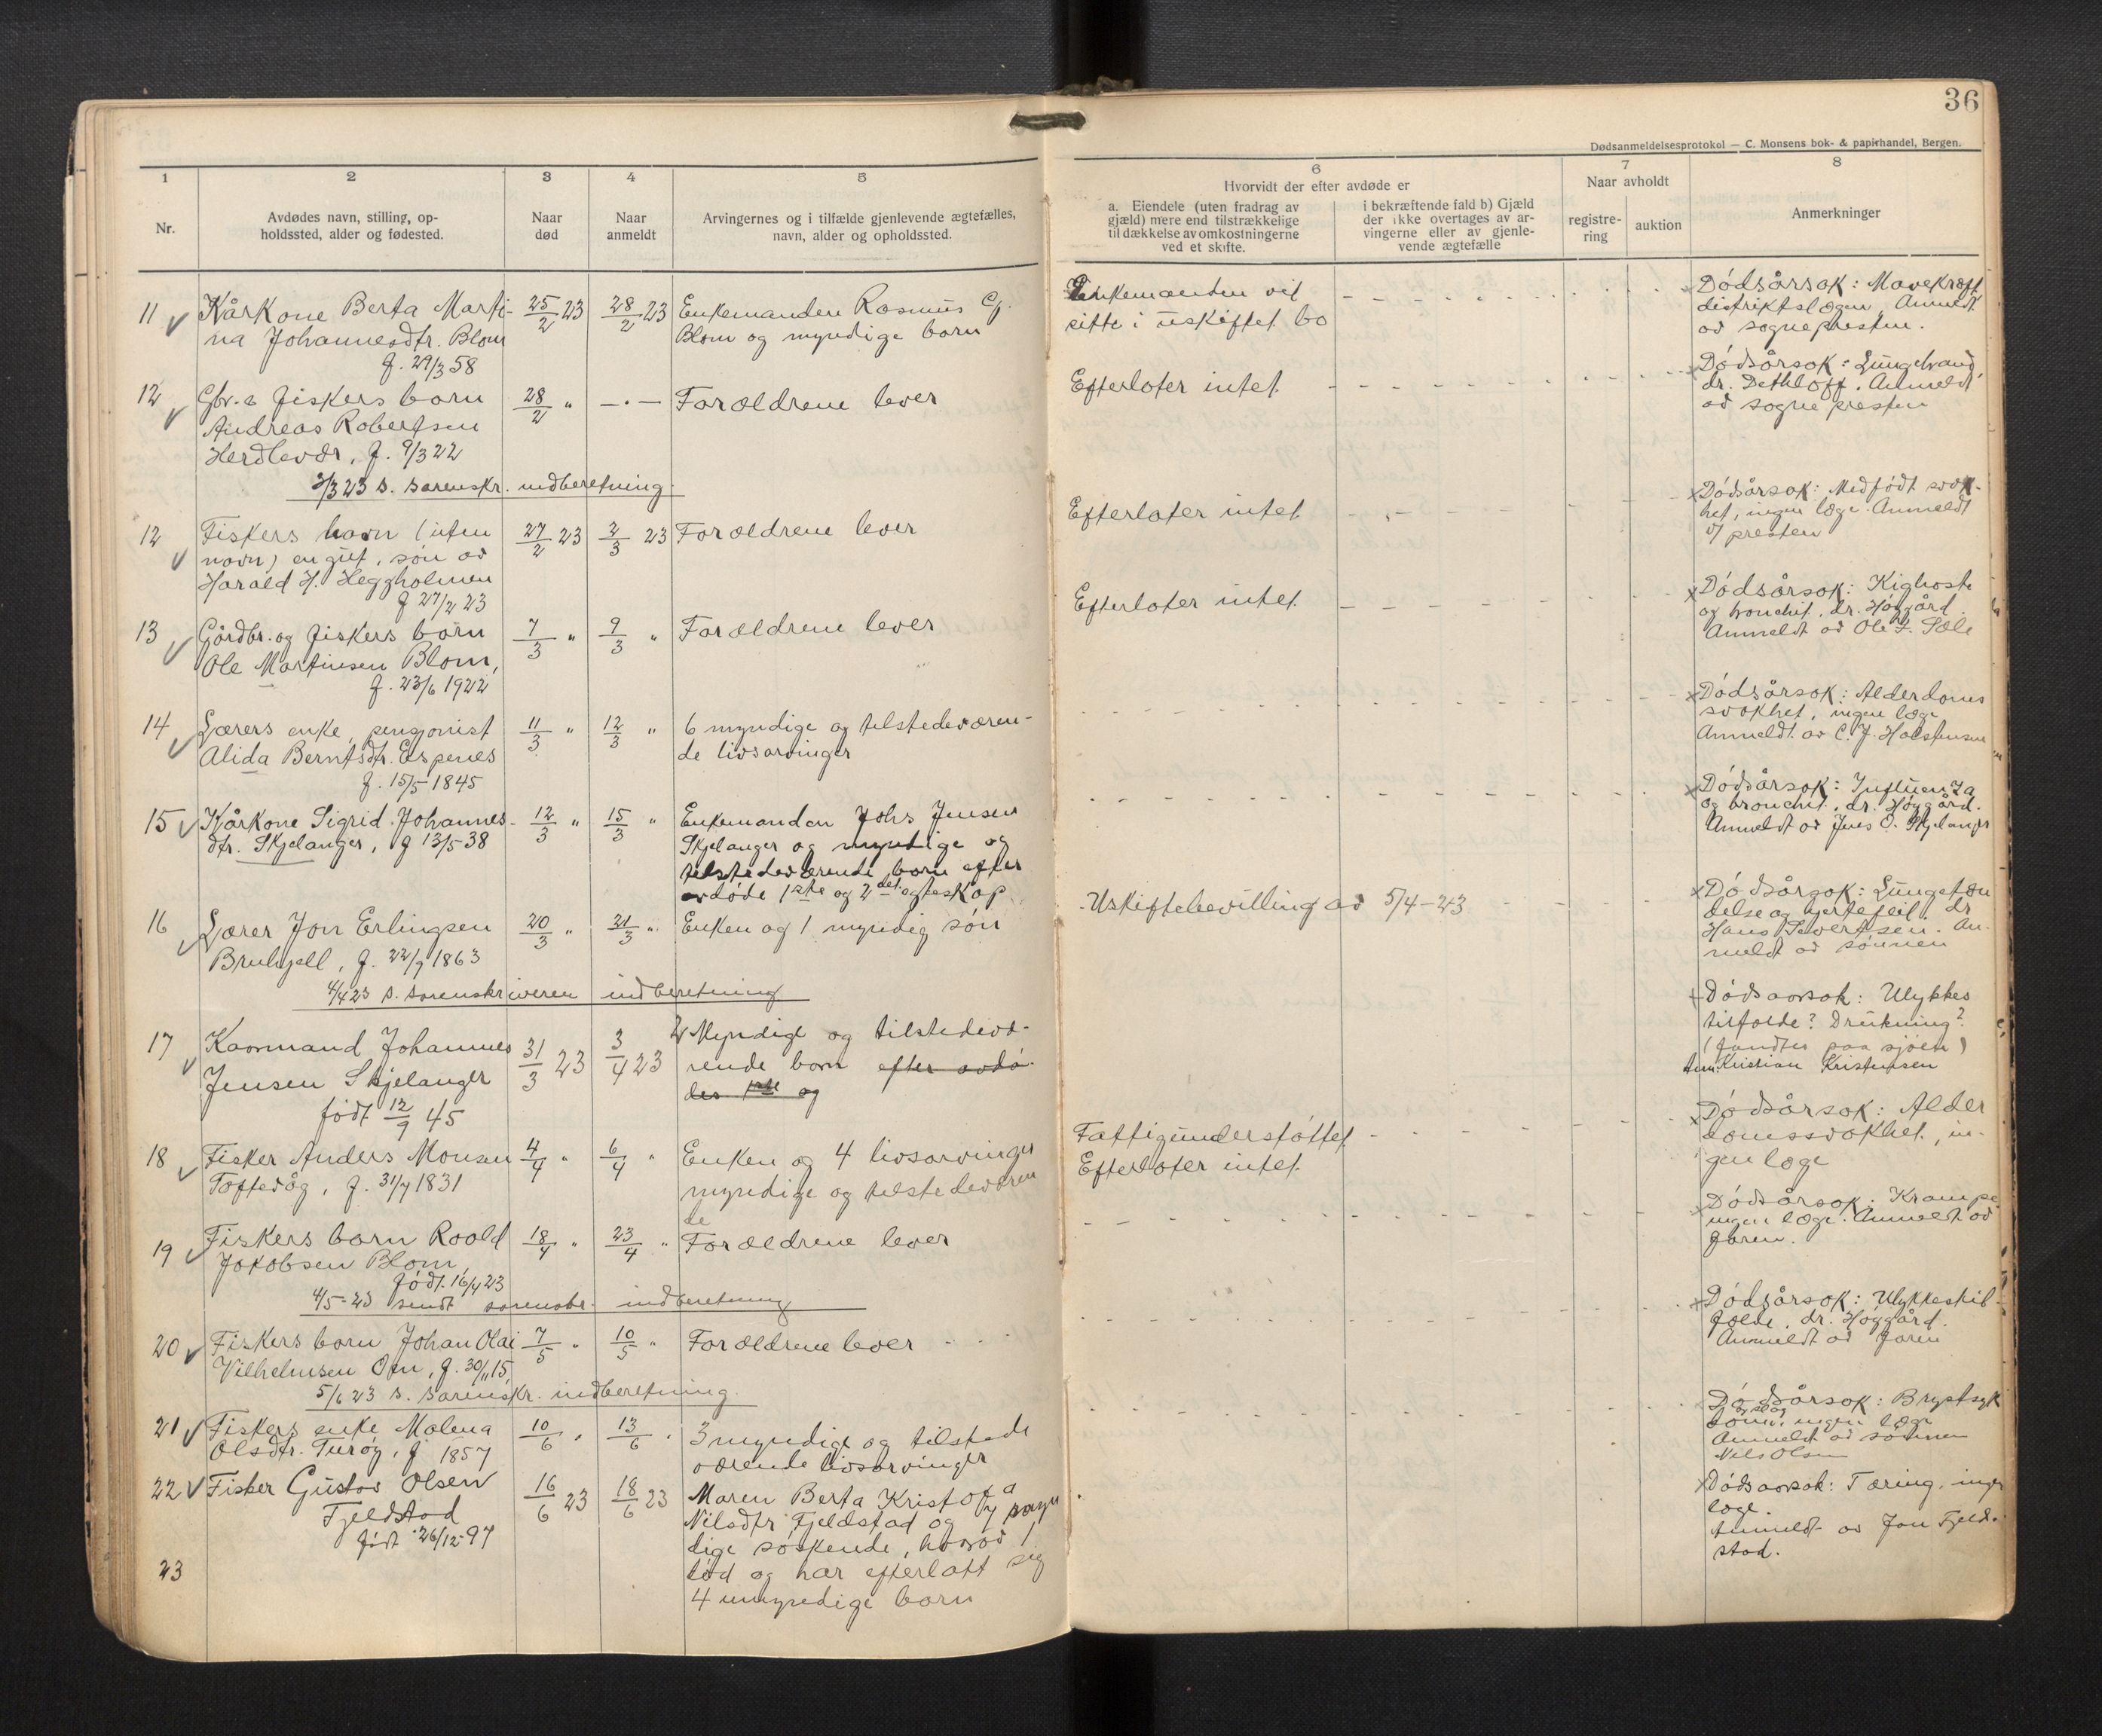 36
Dødsanmeldelsesprotokol — C. Monsens bok- & papirhandel, Bergen.
1
Nr.
2
Avdødes navn, stilling, op-
holdssted, alder og fødested.
3
Naar
død
4
Naar
anmeldt
5
Arvingernes og i tilfælde gjenlevende ægtefælles,
navn, alder og opholdssted.
6
Hvorvidt der efter avdøde er
a. Eiendele (uten fradrag av
gjæld) mere end tilstrækkelige
til dækkelse av omkostningerne
ved et skifte.
i bekræftende fald b) Gjæld
der ikke overtages av ar-
vingerne eller av gjenle-
vende ægtefælle
7
Naar avholdt
registre-
ring
auktion
8
Anmerkninger
11
Kårkone Berta Marti-
na Johannesdtr. Blom
f. 29/3 58
25/2 23
28/2 23
Enkemanden Rasmus
Blom og myndige barn
Enkemanden vil
sitte i uskiftet bo
Dødsårsak: Mavekræft
distriktslægen. Anmeldt
av sognepresten.
12
Gbr. & Fiskers barn
Andreas Robertsen
Herdlevær, f. 9/3 22
28/2 "
— . —
Forældrene lever
Efterlater intet
Dødsårsak: Lungebrand,
dr. Dethloff. Anmeldt
av sognepresten
3/3 23 s. sorenskr. indberetning.
12
Fiskers barn (uten
navn) en gut, søn av
Harald H. Heggholmen
f 27/2 23
27/2 23
2/3 23
Forældrene lever
Efterlater intet
Dødsårsak: Medfødt svak-
het, ingen læge. Anmeldt
av presten
13
Gårdbr. og fiskers barn
Ole Martinsen Blom,
f. 23/6 1922
7/3 "
9/3 "
Forældrene lever
Efterlater intet
Dødsårsak: Kighoste
og bronchit, dr. Høygård.
Anmeldt av Ole
14
Lærers enke, pensjonist
Alida Berntsdtr. Espenes
f. 15/5 1845
11/3 "
12/3 "
6 myndige og tilstedeværen-
de livsarvinger
Dødsårsak: Alderdoms
svakhet, ingen læge
Anmeldt av C. J. Halstensen
15
Kårkone Sigrid Johannes-
dtr. Skjelanger, f 13/5-38
12/3 "
15/3 "
Enkemanden Johs Jensen
Skjelanger og myndige og
tilstedeværende barn efter
avdøde 1ste og 2det egteskap
Dødsårsak: Influenza
og bronchit, dr. Høygård.
Anmeldt av Jens O. Skjelanger
16
Lærer Jon Erlingsen
Bruhjell, f. 22/9 1863
20/3 "
21/3 "
Enken og 1 myndig søn
Uskiftebevilling av 5/4-23
Dødsårsak: Lungebetæn
delse og hjertefeil. dr
Hans Sivertsen. An-
meldt av sønnen
4/4 23 s. sorenskriveren indberetning
17
Kaarmand Johannes
Jensen Skjelanger
født 12/9 45
31/3 23
3/4 23
2 Myndige og tilstedevæ-
rende barn efter avdø-
des 1ste og
Dødsaarsak: Ulykkes
tilfælde? Drukning?
(fundtes paa sjøen)
Anm. Kristian Kristensen
18
Fisker Anders Monsen
Toftevåg, f. 31/7 1831
4/4 "
6/4 "
Enken og 4 livsarvinger
myndige og tilstedeværen
de
Fattigunderstøttet
Efterlater intet
Dødsårsak: Alder
domssvakhet, in-
gen læge
19
Fiskers barn Roald
Jakobsen Blom,
født 16/4 23
18/4 "
23/4 "
Forældrene lever
Dødsårsak: Krampe
ingen læge. Anmeldt av
faren.
4/5-23 sendt sorenskr. indberetning
20
Fiskers barn Johan Olai
Vilhelmsen Oen, f. 30/11 15
7/5 "
10/5 "
Forældrene lever
Dødsårsak: Ulykkestil-
fælde, dr. Høygård.
Anmeldt av faren
5/6 23 s. sorenskr. indberetning
21
Fiskers enke Malena
Olsdtr. Turøy, f 1857
10/6 "
13/6 "
3 myndige og tilstede
værende livsarvinger
Dødsårsak: Brystsyk
dom, ingen læge
Anmeldt av sønnen
Nils Olsen
22
Fisker Gustav Olsen
Fjeldstad
født 26/12-97
16/6 23
18/6 23
Maren Berta Kristofa
Nilsdtr Fjeldstad og 7 myn
dige søskende, hvorav 1
død og har efterlatt sig
4 umyndige barn
Dødsaarsak: Tæring, ingen
læge.
Anmeldt av Jon Fjeld-
stad.
23